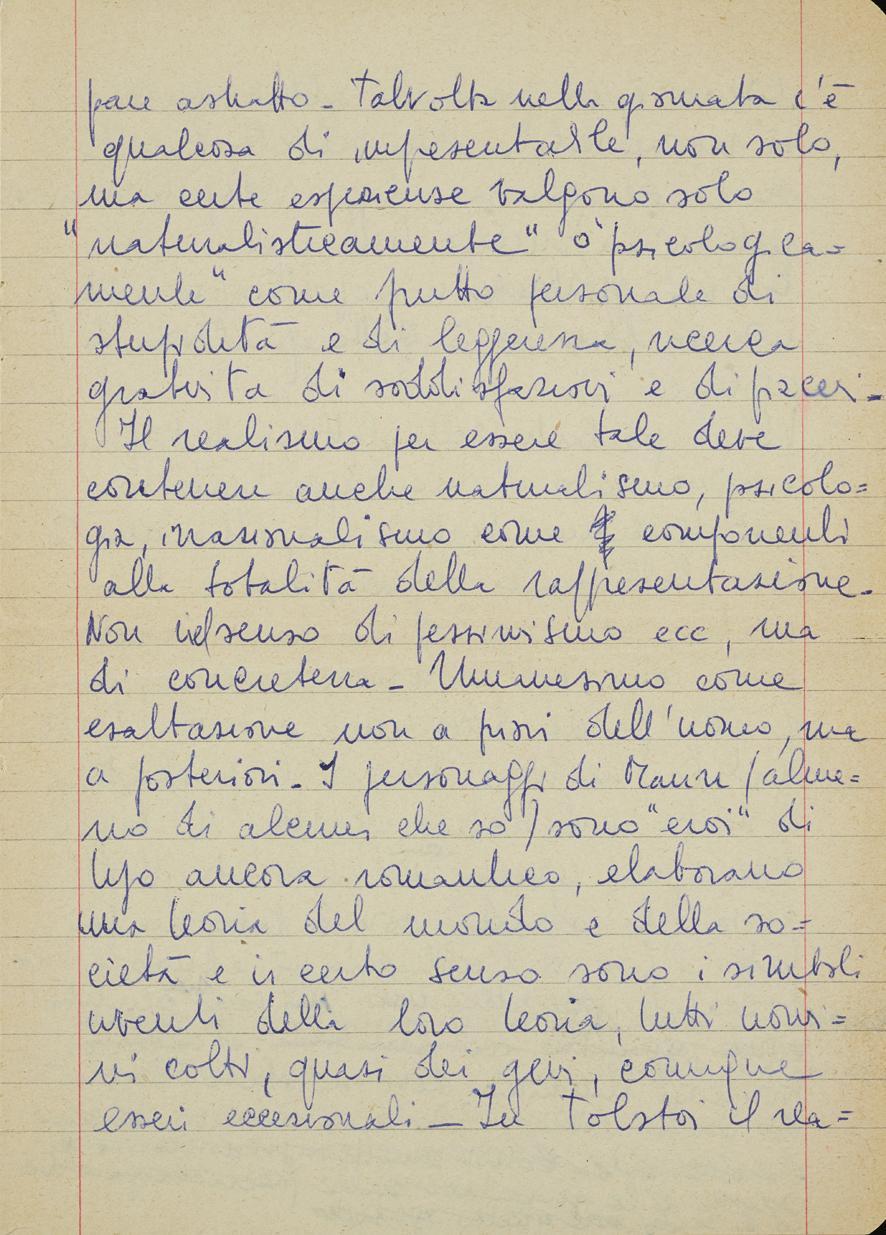 pare astratto - Talvolta nella giornata c'è
qualcosa di irripresentabile, non solo,
ma certe esperienze valgono solo
"naturalisticamente" o "psicologica=
mente" come frutto personale di
stupidità e di leggerezza, ricerca
gratuita di soddisfazioni e di piaceri -
Il realismo per essere tale deve
contenere anche naturalismo, psicolo=
gia, irrazionalismo come componenti
alla totalità della rappresentazione.
Non nel senso di pessimismo ecc, ma
di concretezza - Umanesimo come
esaltazione non a priori dell'uomo, ma
a posteriori - I personaggi di Mann (alme=
no di alcuni che so) sono "eroi" di
tipo ancora romantico, elaborano
una teoria del mondo e della so=
cietà e in certo senso sono i simboli
viventi della loro teoria, tutti uomi=
ni colti, quasi dei geni, comunque
esseri eccezionali - In Tolstoi il rea=